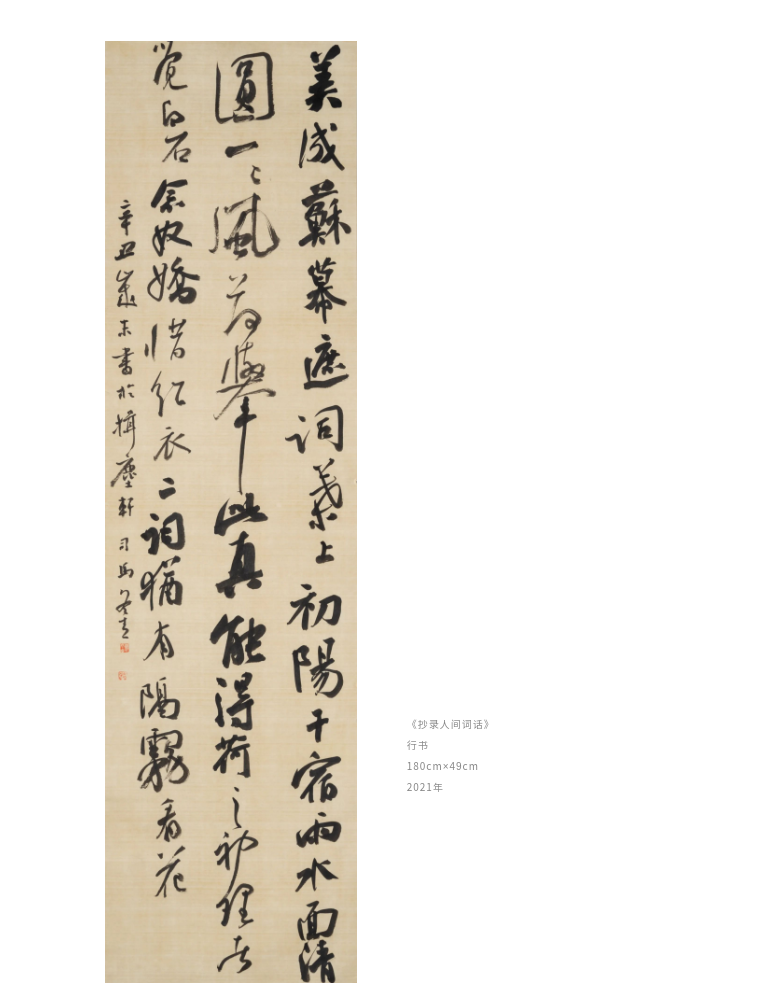 美成蘇幕遮詞葉上初陽干宿雨水面清
圓一〻風荷舉此真能得荷之神理者
覺白石念奴嬌惜紅衣二詞猶有隔霧看花
辛丑歲末書於塵軒 司馬
《抄录人间词话》
行书
180cm×49cm
2021年